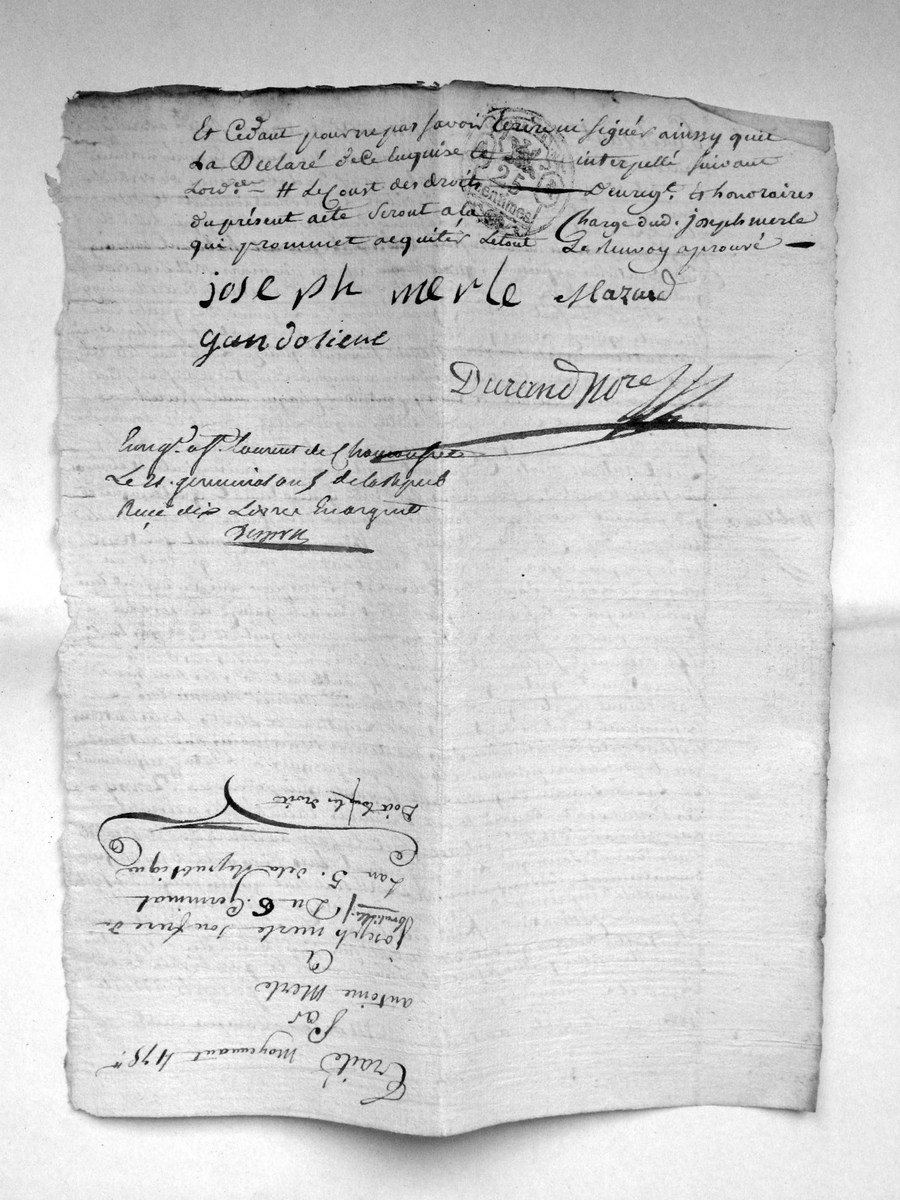 Et Cedant pour ne pas savoir Ecrire ni signer ainssy quil
La Declaré de ce Enquise et interpellé suivant
Lord.ce # Le Coust des droits Denregt. et honoraires
du présent acte seront a la Charge dud. joseph merle
qui prommet acquiter Letout Le Renvoy aprouvé
25
Centimes
joseph merle Mazard
gandosiene
Durand Nore
Enregé. a St. Laurent de Chamousset
Le 21. germinal an 5 de la Repub
Reçu dix Livres En argent
Traité moyennant 475#
Par
antoine Merle
a
joseph merle son frere
Du 6. Germinal
Lan 5. de la Republique
Doit tous les droits